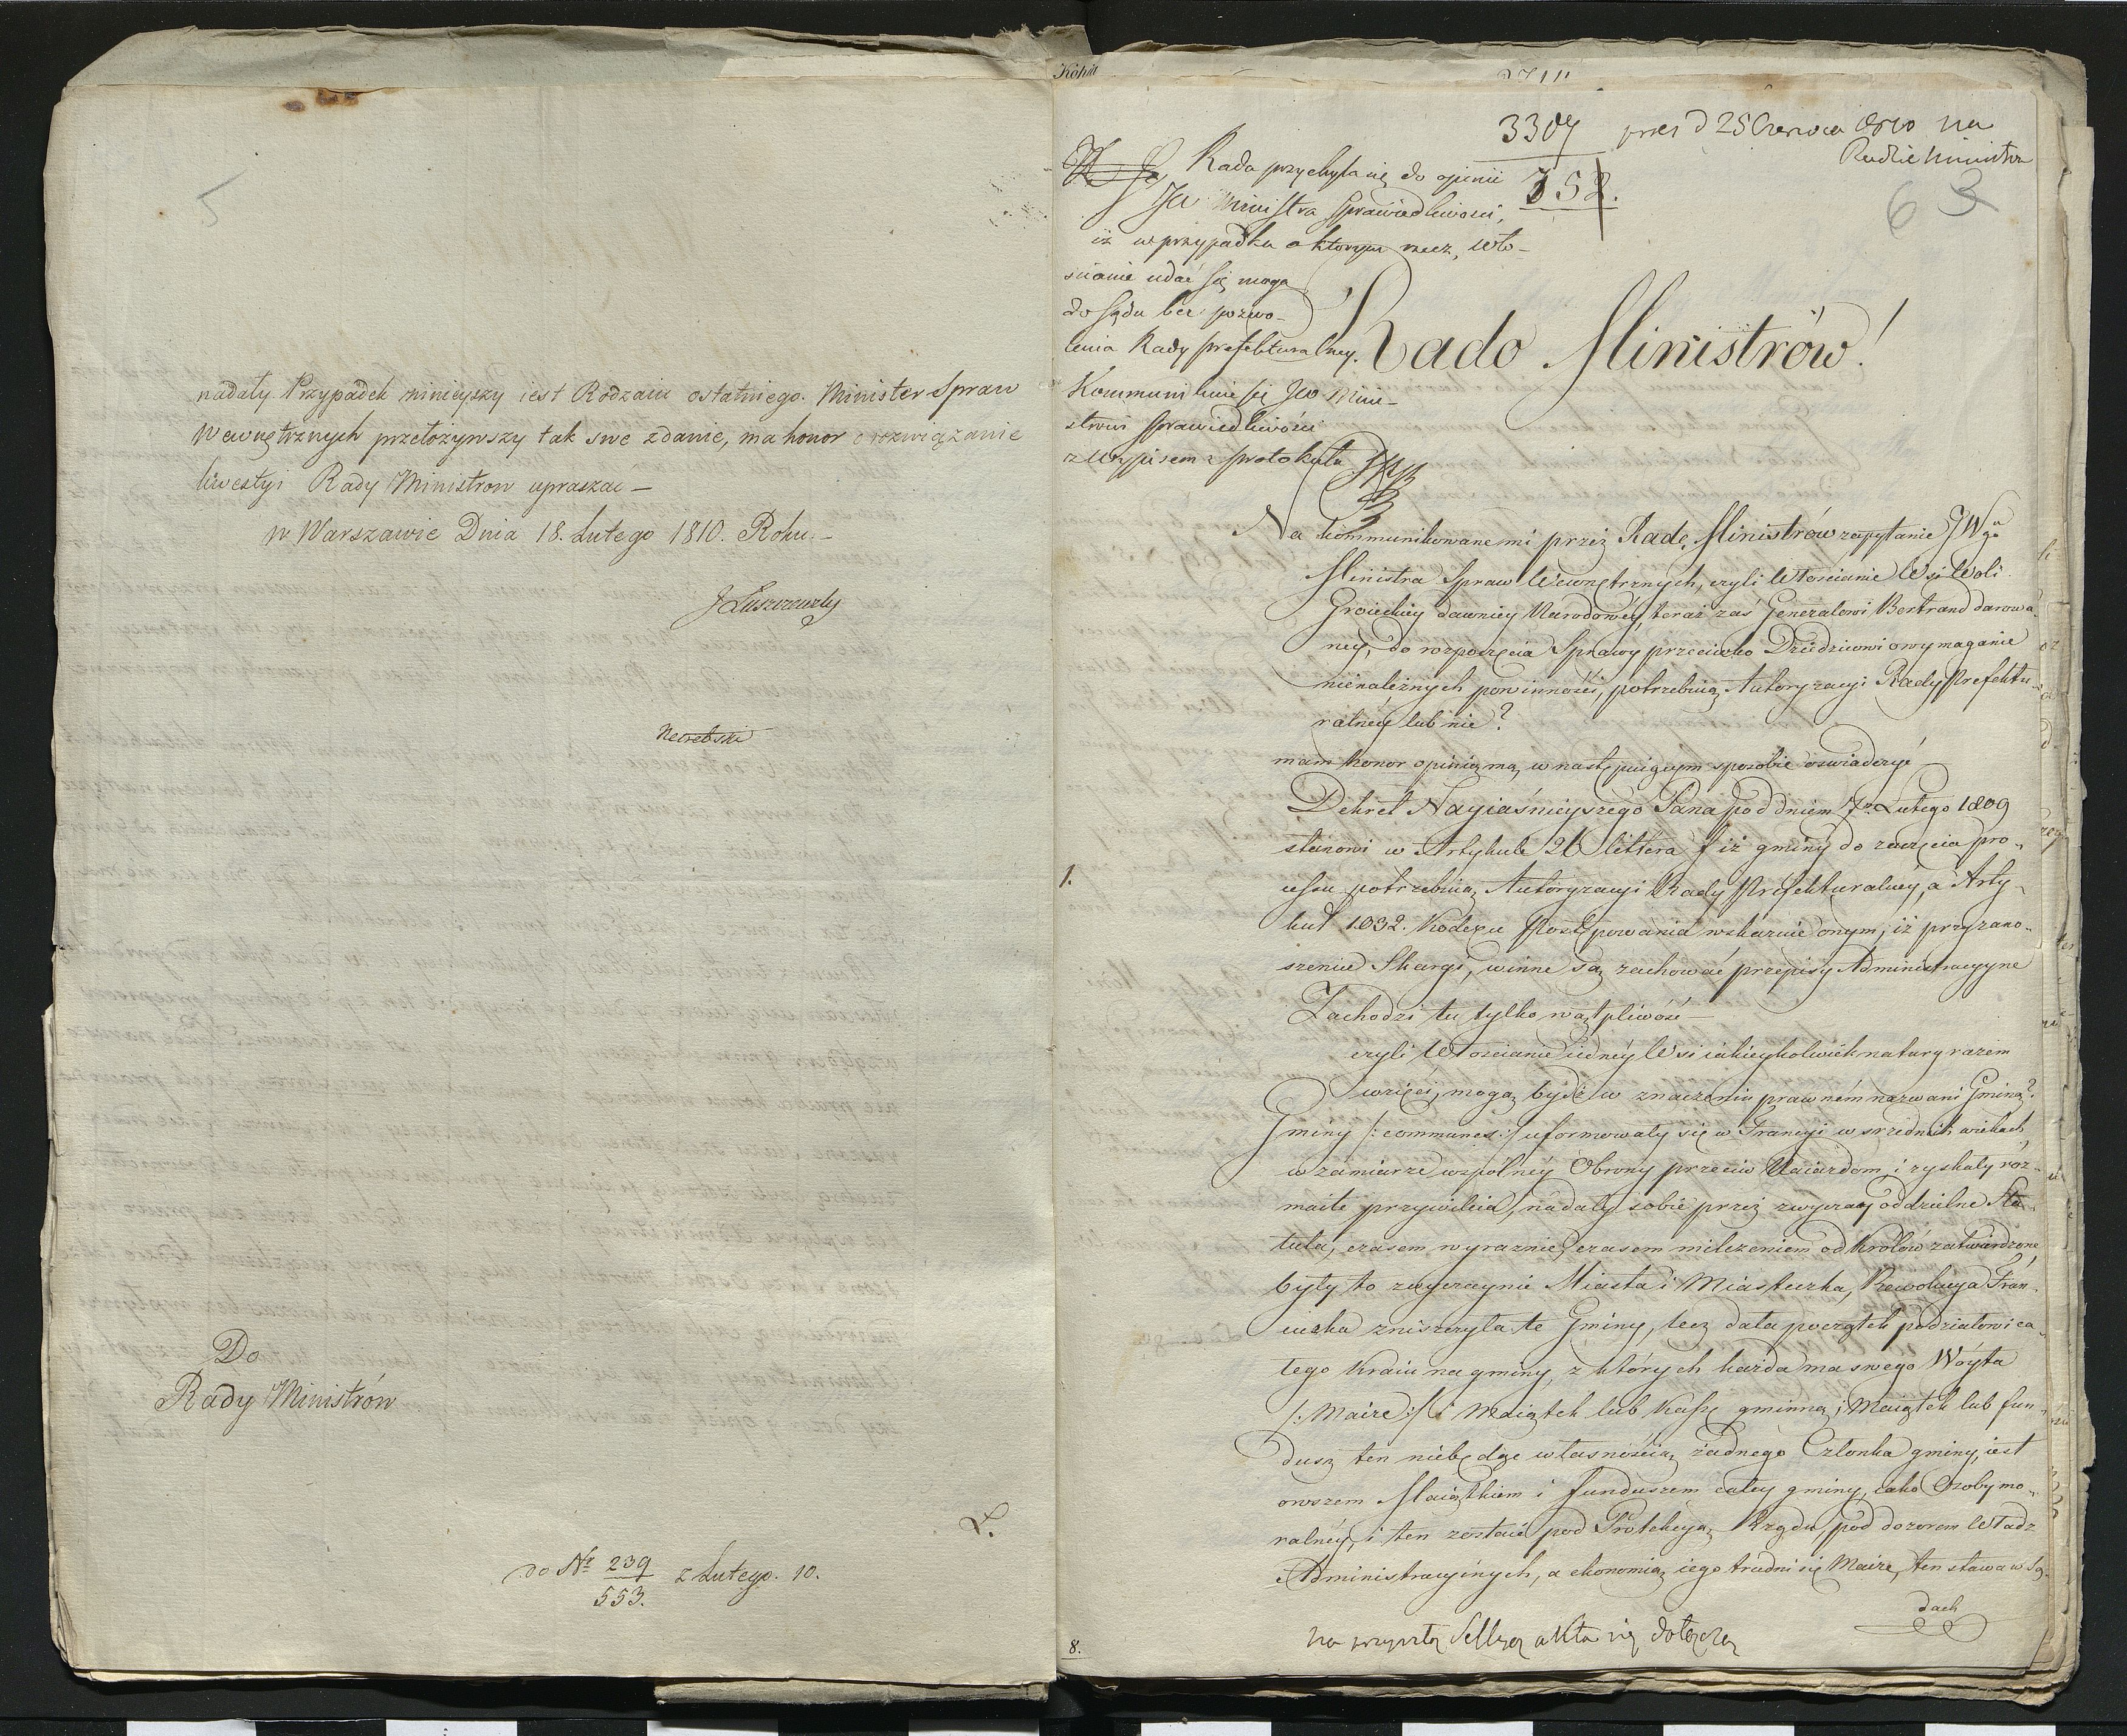 5
nadały Przypadek ninieyszy iest Rodzaiu ostatniego. Minister Spraw
Wewnętrznych przełożywszy tak swe zdanie, ma honor o rozwiązanie
kwestyi Rady Ministrow upraszac —
w Warszawie Dnia 18. Lutego 1810. Roku.—
J Łuszczewsky
Do
Rady Ministrów
do Nr 239/553. z Lutego. 10.
3307 prez d 25 Czerwca 1810 na
Radzie Ministrów
352.
6 3
Rada przychyla się do opinii
JW Ministra Sprawiedliwości,
iż w przypadku o którym rzecz, wło-
scianie udać się mogą
do sądu bez pozwo-
lenia Rady prefekturalney.
Kommunikuie się JW Mini-
strowi Sprawiedliwości
z wypisem z protokułu
Rado Ministrów!
Na kommunikowane mi przez Radę Ministrów zapytanie JWgo
Ministra Spraw Wewnętrznych, czyli Włoscianie Wsi Woli
Grojeckiey dawniey Narodowey, teraz zaś Generałowi Bertrand darowa-
ney, do rozpoczęcia Sprawy przeciwko Dziedzicowi o wymaganie
nienależnych powinności, potrzebuią Autoryzacyi Rady Prefektu-
ralney lub nie?
mam honor opinią mą w następuiącym sposobie oswiadczyć
Dekret Nayiaśnieyszego Pana pod dniem 7. Lutego 1809
stanowi w Artykule 26 littera f iż gminy do zaczęcia pro-
cessu potrzebuią Autoryzacyi Rady Prefekturalney, a Arty-
1.
kuł 1032. Kodexu Postępowania wskazuie onym, iż przy zano-
szeniu Skargi, winne są zachować przepisy Administracyyne
Zachodzi tu tylko wątpliwość —
czyli Włoscianie iedney Wsi iakieykolwiek natury razem
wzięci, mogą bydź w znaczeniu prawném nazwani Gminą?
Gminy /:communes:/ uformowały się w Francyi w srzednich wiekach,
w zamiarze wspólney Obrony przeciw Naiazdom, i zyskały róż-
maite przywileia, nadały sobie przez zwyczay oddzielne Sta-
tuta, czasem wyraznie, czasem milczeniem od Królów zatwierdzone,
były to zwyczaynie Miasta i Miasteczka, Rewolucya Fran-
cuzka zniszczyła te Gminy, lecz dała początek podziałowi ca-
łego kraiu na gminy, z których każda ma swego Wóyta
/:Maire:/ i Maiątek lub kassę gminną; Maiątek lub fun-
dusz ten niebędąc własnością żadnego Członka gminy, iest
owszem Maiątkiem i funduszem całey gminy, iako Osoby mo-
ralney, i ten zostaie pod Protekcyą Rządu, pod dozorem Władz
Administracyinych, a ekonomią iego trudni się Maire, ten stawa w Są-
dach
na przyszłą Sessyą akta się dołączą
8.